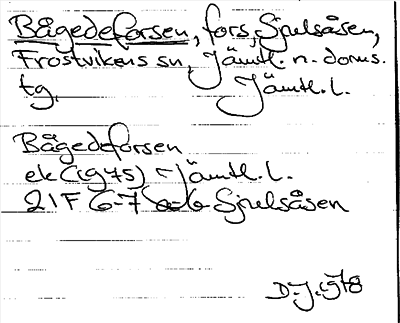 Bågedeforsen, fors, Sjulsåsen,
Frostvikens sn, Jämtl. n. doms.
tg, Jämtl. l.
Bågedeforsen
ek (1975) Jämtl. l.
21F 6-7 Sjulsåsen
D.J. 1978